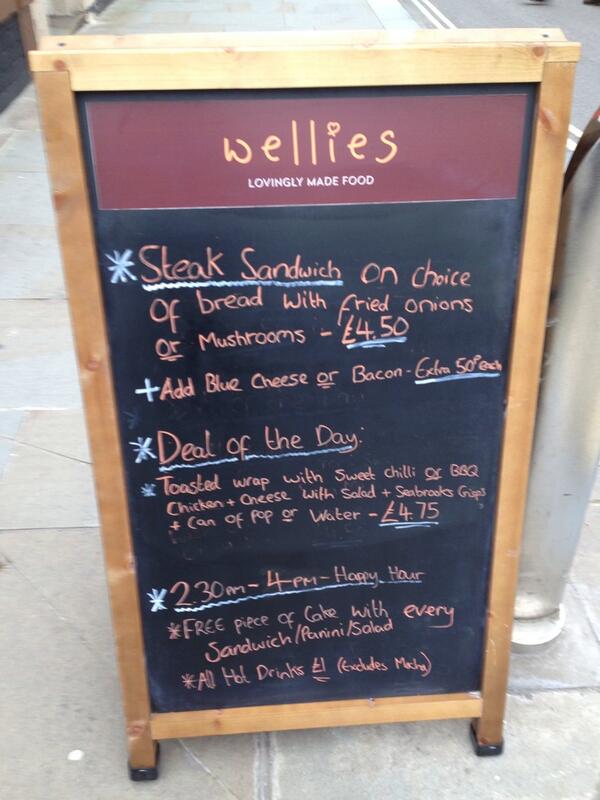 wellies
LOVINGLY MADE FOOD
* Steak Sandwich on choice
of bread with fried onions
or Mushrooms - £4.50
+ Add Blue Cheese or Bacon - Extra 50p each
* Deal of the Day:
* Toasted wrap with Sweet chilli or BBQ
Chicken + Cheese with Salad + Seabrooks Crisps
+ Can of Pop or Water - £4.75
* 2.30pm - 4pm - Happy Hour
* FREE piece of Cake with every
Sandwich/Panini/Salad
* All Hot Drinks £1 (Excludes Mocha)